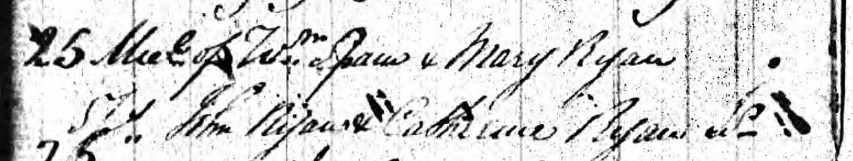 25 Micl of Wm Ryan & Mary Ryan
Sps John Ryan & Catherine Ryan
25